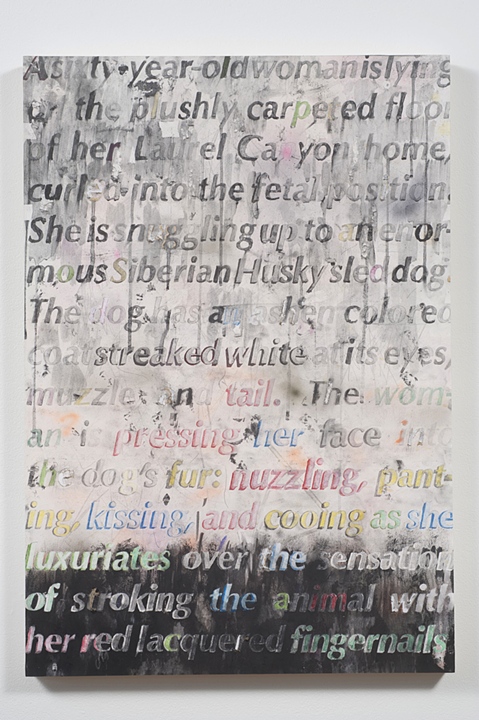 A sixty-year-old woman is lying
on the plushly carpeted floor
of her Laurel Canyon home,
curled into the fetal position.
She is snuggling up to an enor-
mous Siberian Husky sled dog.
The dog has an ashen colored
coat streaked white at its eyes,
muzzle and tail. The wom-
an is pressing her face into
the dog's fur: nuzzling, pant-
ing, kissing, and cooing as she
luxuriates over the sensation
of stroking the animal with
her red lacquered fingernails